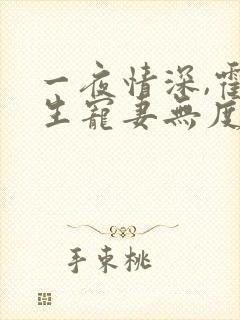 一夜情深,霍
生寵妻無度
手束桃